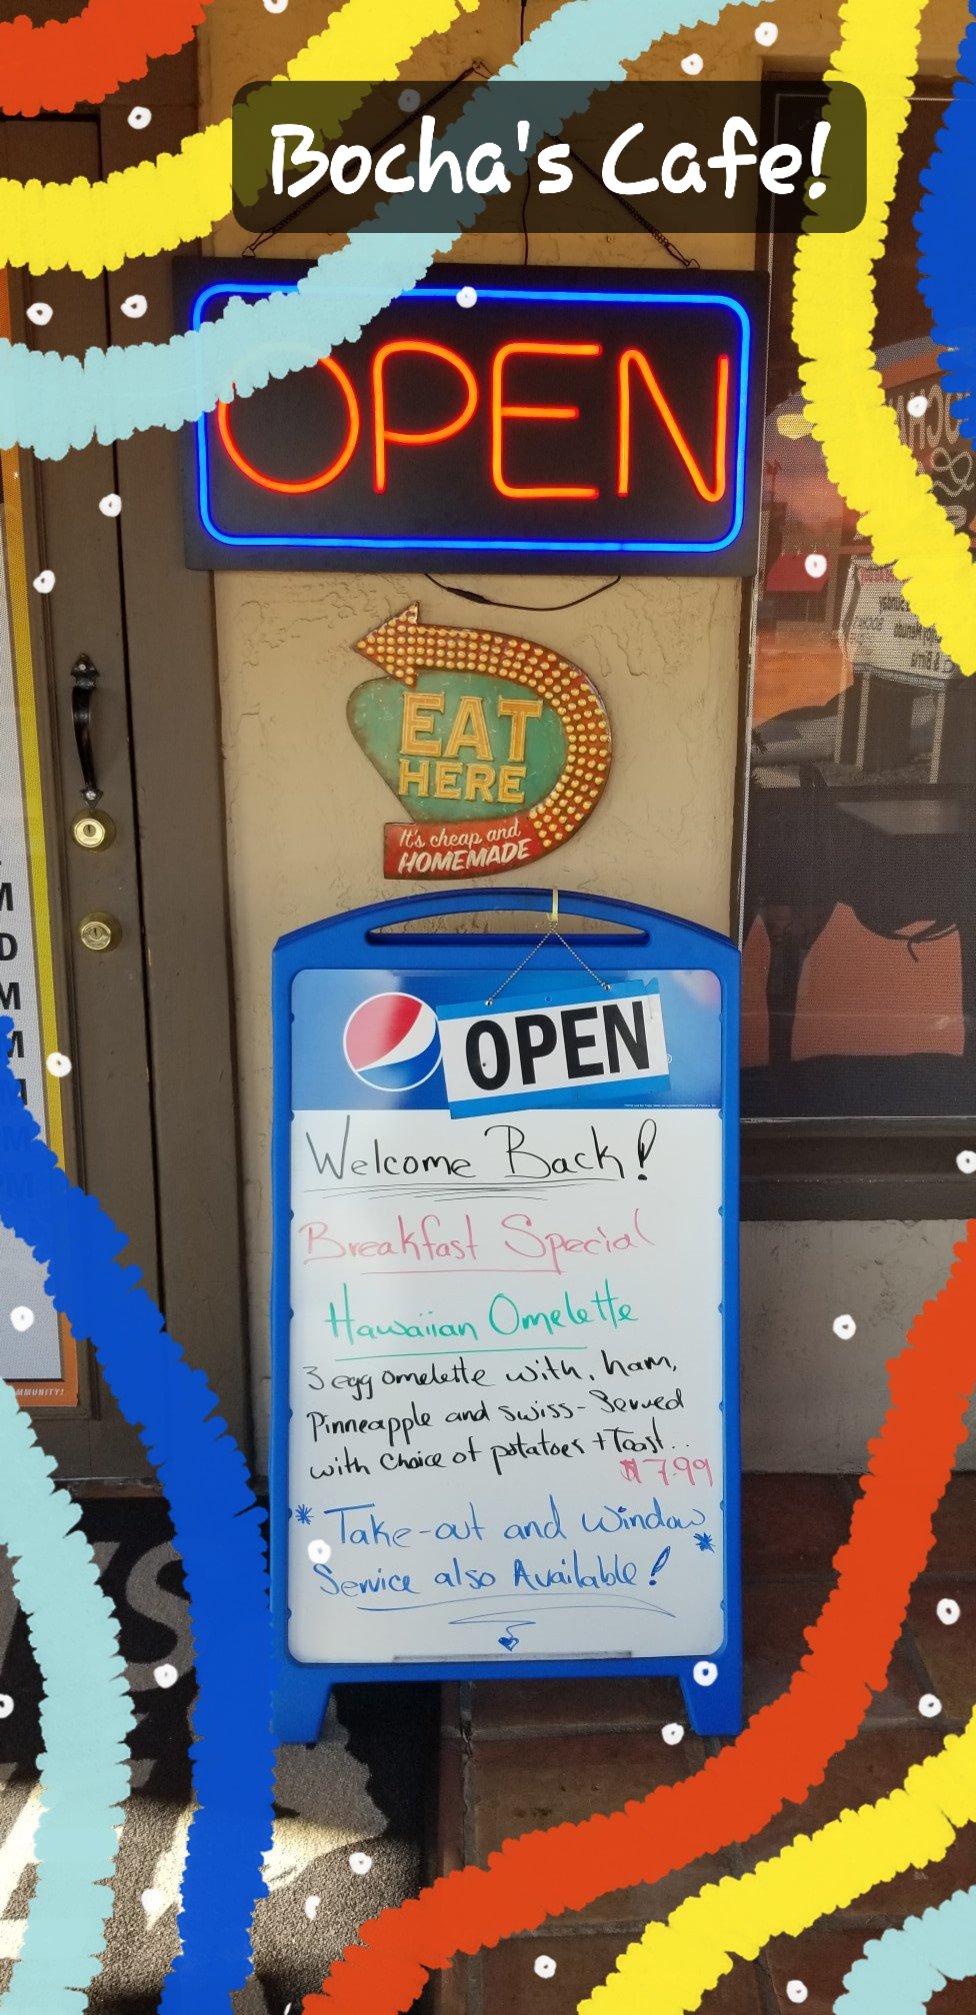 Bocha's Cafe!
OPEN
EAT
HERE
It's cheap and
HOMEMADE
OPEN
Welcome Back!
Breakfast Special
Hawaiian Omelette
3 egg omelette with, ham,
Pinneapple and swiss - Served
with choice of potatoes + Toast..
$7.99
* Take-out and window *
Service also Available!
M
D
M
M
MMUNITY!